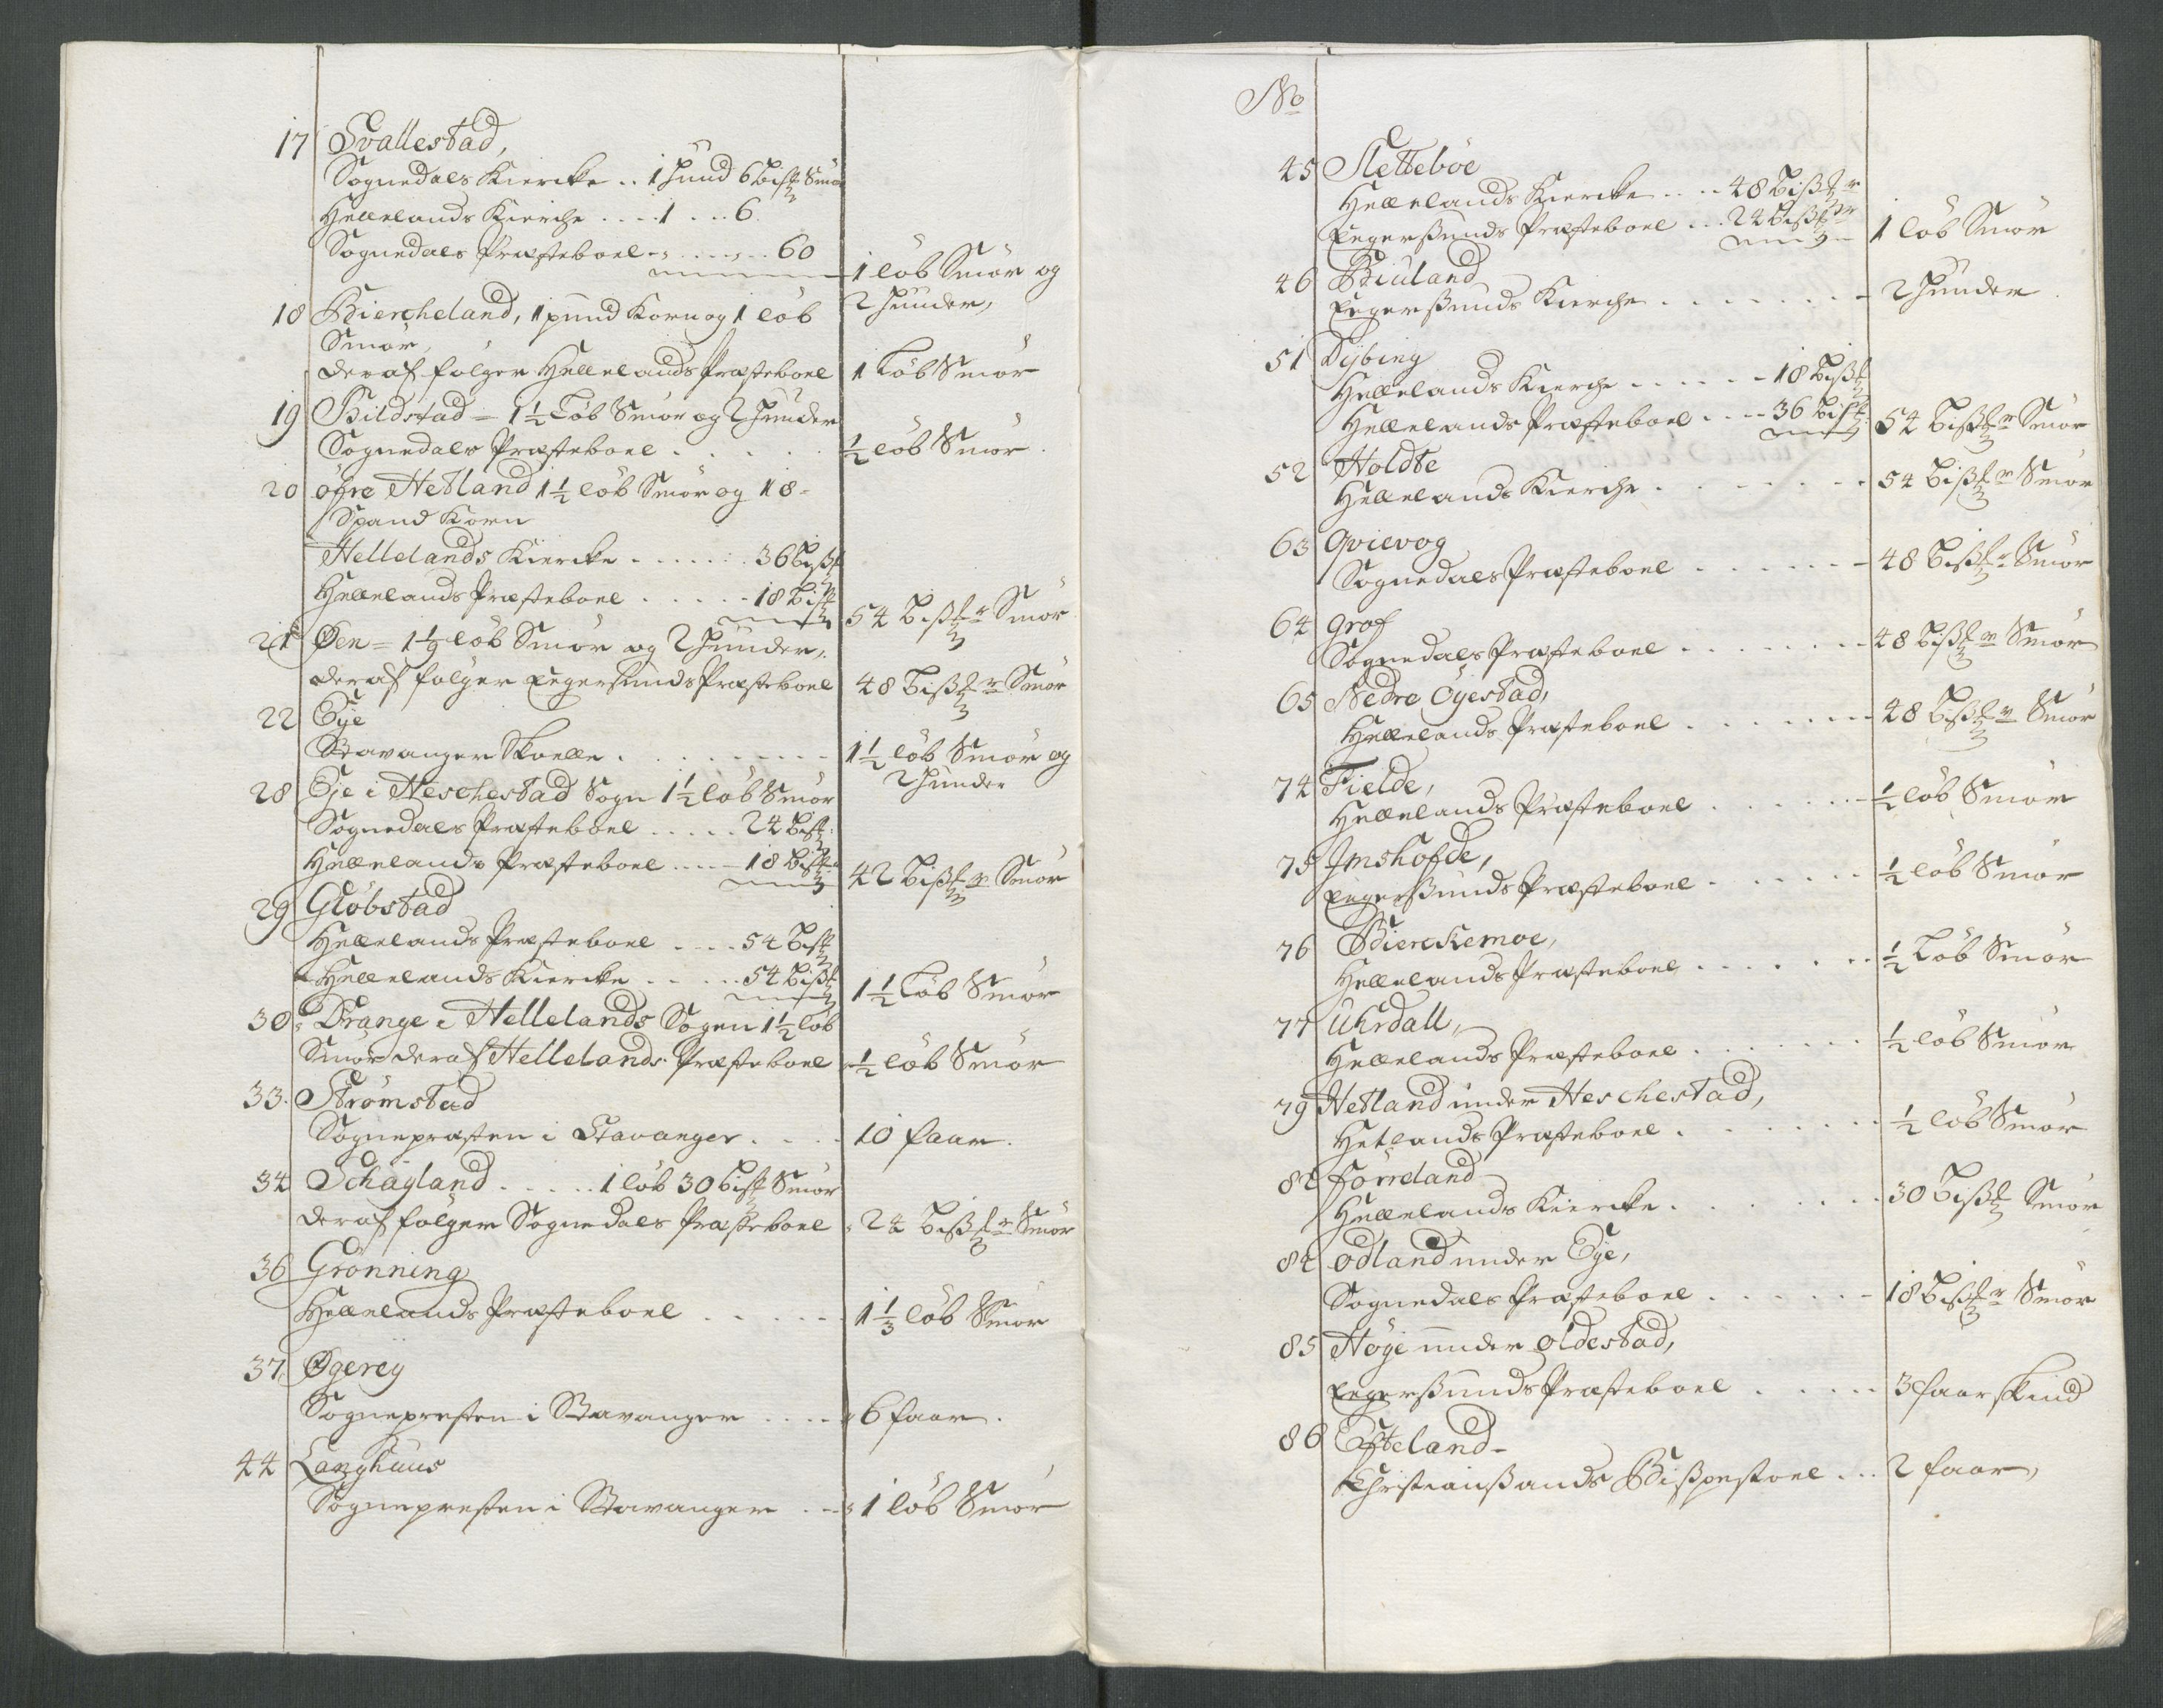 17 Svallestad,
Sognedals Kiercke .. 1 Huud 6 Bis℔ Smör
Hellelands Kierche .... 1 ... 6.
Sognedals Præsteboel ........ 60
1 löb Smör og
2 Huuder,
18 Biercheland, 1 pund Korn og 1 löb
Smör,
deraf følger Hellelands Præsteboel 1 Löb Smör
19 Bildstad = 1½ Löb Smör og 2 Huuder
Sognedals Præsteboel . . . . . ½ löb Smör.
20 öfre Hetland 1½ löb Smör og 18
Spand Korn
Hellelands Kiercke . . . . . . 36 Biß℔
Hellelands Præsteboel . . . . . 18 Bis℔ 54 Biß℔r Smör
21 Øen = 1½ löb Smör og 2 Huuder,
deraf følger Egersunds Præsteboel 48 Biß℔r Smör
22 Eÿe
Stavanger Skoelle . . . . . . . . 1½ löb Smör og
2 Huuder
28 Eje i Heschestad Sogn 1½ löb Smör
Sognedals Præsteboel . . . . . 24 Bis℔:
Hellelands Præsteboel .... 18 Bis℔ 42 Biß℔r Smör
29 Glöbstad
Hellelands Præsteboel .... 54 Bis℔
Hellelands Kiercke . . . . . 54 Biß℔ 1½ Löb Smör
30 Drange i Hellelands Sogen 1½ löb
Smör deraf Hellelands Præsteboel ½ löb Smör
33. Strømstad
Sognepræsten i Stavanger . . . . 10 faar.
34 Schåyland . . . . . 1 löb 30 Bis℔ Smör
deraf følger Sognedals Præsteboel 24 Biß℔r Smör
36 Grönning
Hellelands Præsteboel . . . . . 1⅓ löb Smör
37 Øgereÿ
Sognepresten i Stavanger .... 6 faar.
44 Langhuus
Sognepresten i Stavanger . . . 1 löb Smör
No
45 Sletteböe
Hellelands Kiercke .... 48 Biß℔r
Egerßunds Præsteboel ... 24 Biß℔r 1 löb Smör
46 Biuland
Egerßunds Kierche . . . . . . . 2 Huuder
51 Dÿbing
Hellelands Kierche . . . . . . 18 Biß℔
Hellelands Præsteboel .... 36 Bis℔ 54 Biß℔r Smör
52 Holdte
Hellelands Kierche . . . . . . . 54 Biß℔r Smör
63 Qvievog
Sognedals Præsteboel . . . . . . 48 Biß℔r Smör
64 Graf
Sognedals Præsteboel . . . . . . . 48 Biß℔r Smör
65 Nedre Öyestad,
Hellelands Præsteboel . . . . . . . 48 Biß℔r Smör
74 Fielde,
Hellelands Præsteboel . . . . . . ½ löb Smör
75 Imshofde,
Egerßunds Præsteboel . . . . . . ½ löb Smör
76 Bierckemoe,
Hellelands Præsteboel . . . . . . ½ Löb Smör
77 Uhrdall,
Hellelands Præsteboel . . . . . . . ½ löb Smör
79 Hetland under Heschestad,
Hetlands Præsteboel . . . . . . . ½ löb Smör
82 förreland
Hellelands Kiercke . . . . . . . 30 Biß℔ Smör
84 Odland under Eÿe,
Sognedals Præsteboel . . . . . . 18 Biß℔r Smör
85 Höÿe under Oldestad,
Egerßunds Præsteboel . . . . . 3 faar skind
86 Efteland
Christianßands Bißpestoel ... 2 faar,